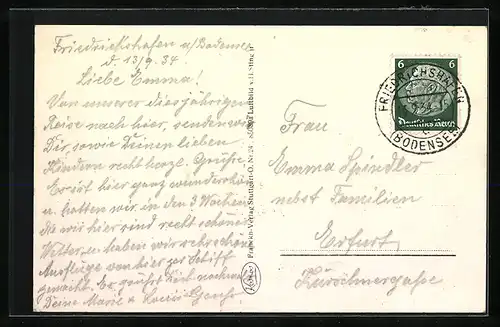 Friedrichshafen a/Bodensee
d. 13/9.34
Liebe Emma!
Von unserer diesjährigen
Reise nach hier, senden wir
Dir, sowie Deinen lieben
Kindern recht herzl. Grüße.
Es ist hier ganz wunderschön
u. hatten wir in den 3 Wochen
die wir hier sind recht schönes
Wetter, u. haben wir sehr schöne
Ausflüge von hier per Schiff
gemacht. Es grüßt Dich nochmals
Deine Marie &
Franckh-Verlag Stuttgart-O.
Luftbild
6 6
Deutsches Reich
FRIEDRICHSHAFEN
(BODENSEE)
Frau
Emma Spindler
nebst Familien
Erfurt
Kürschnergasse